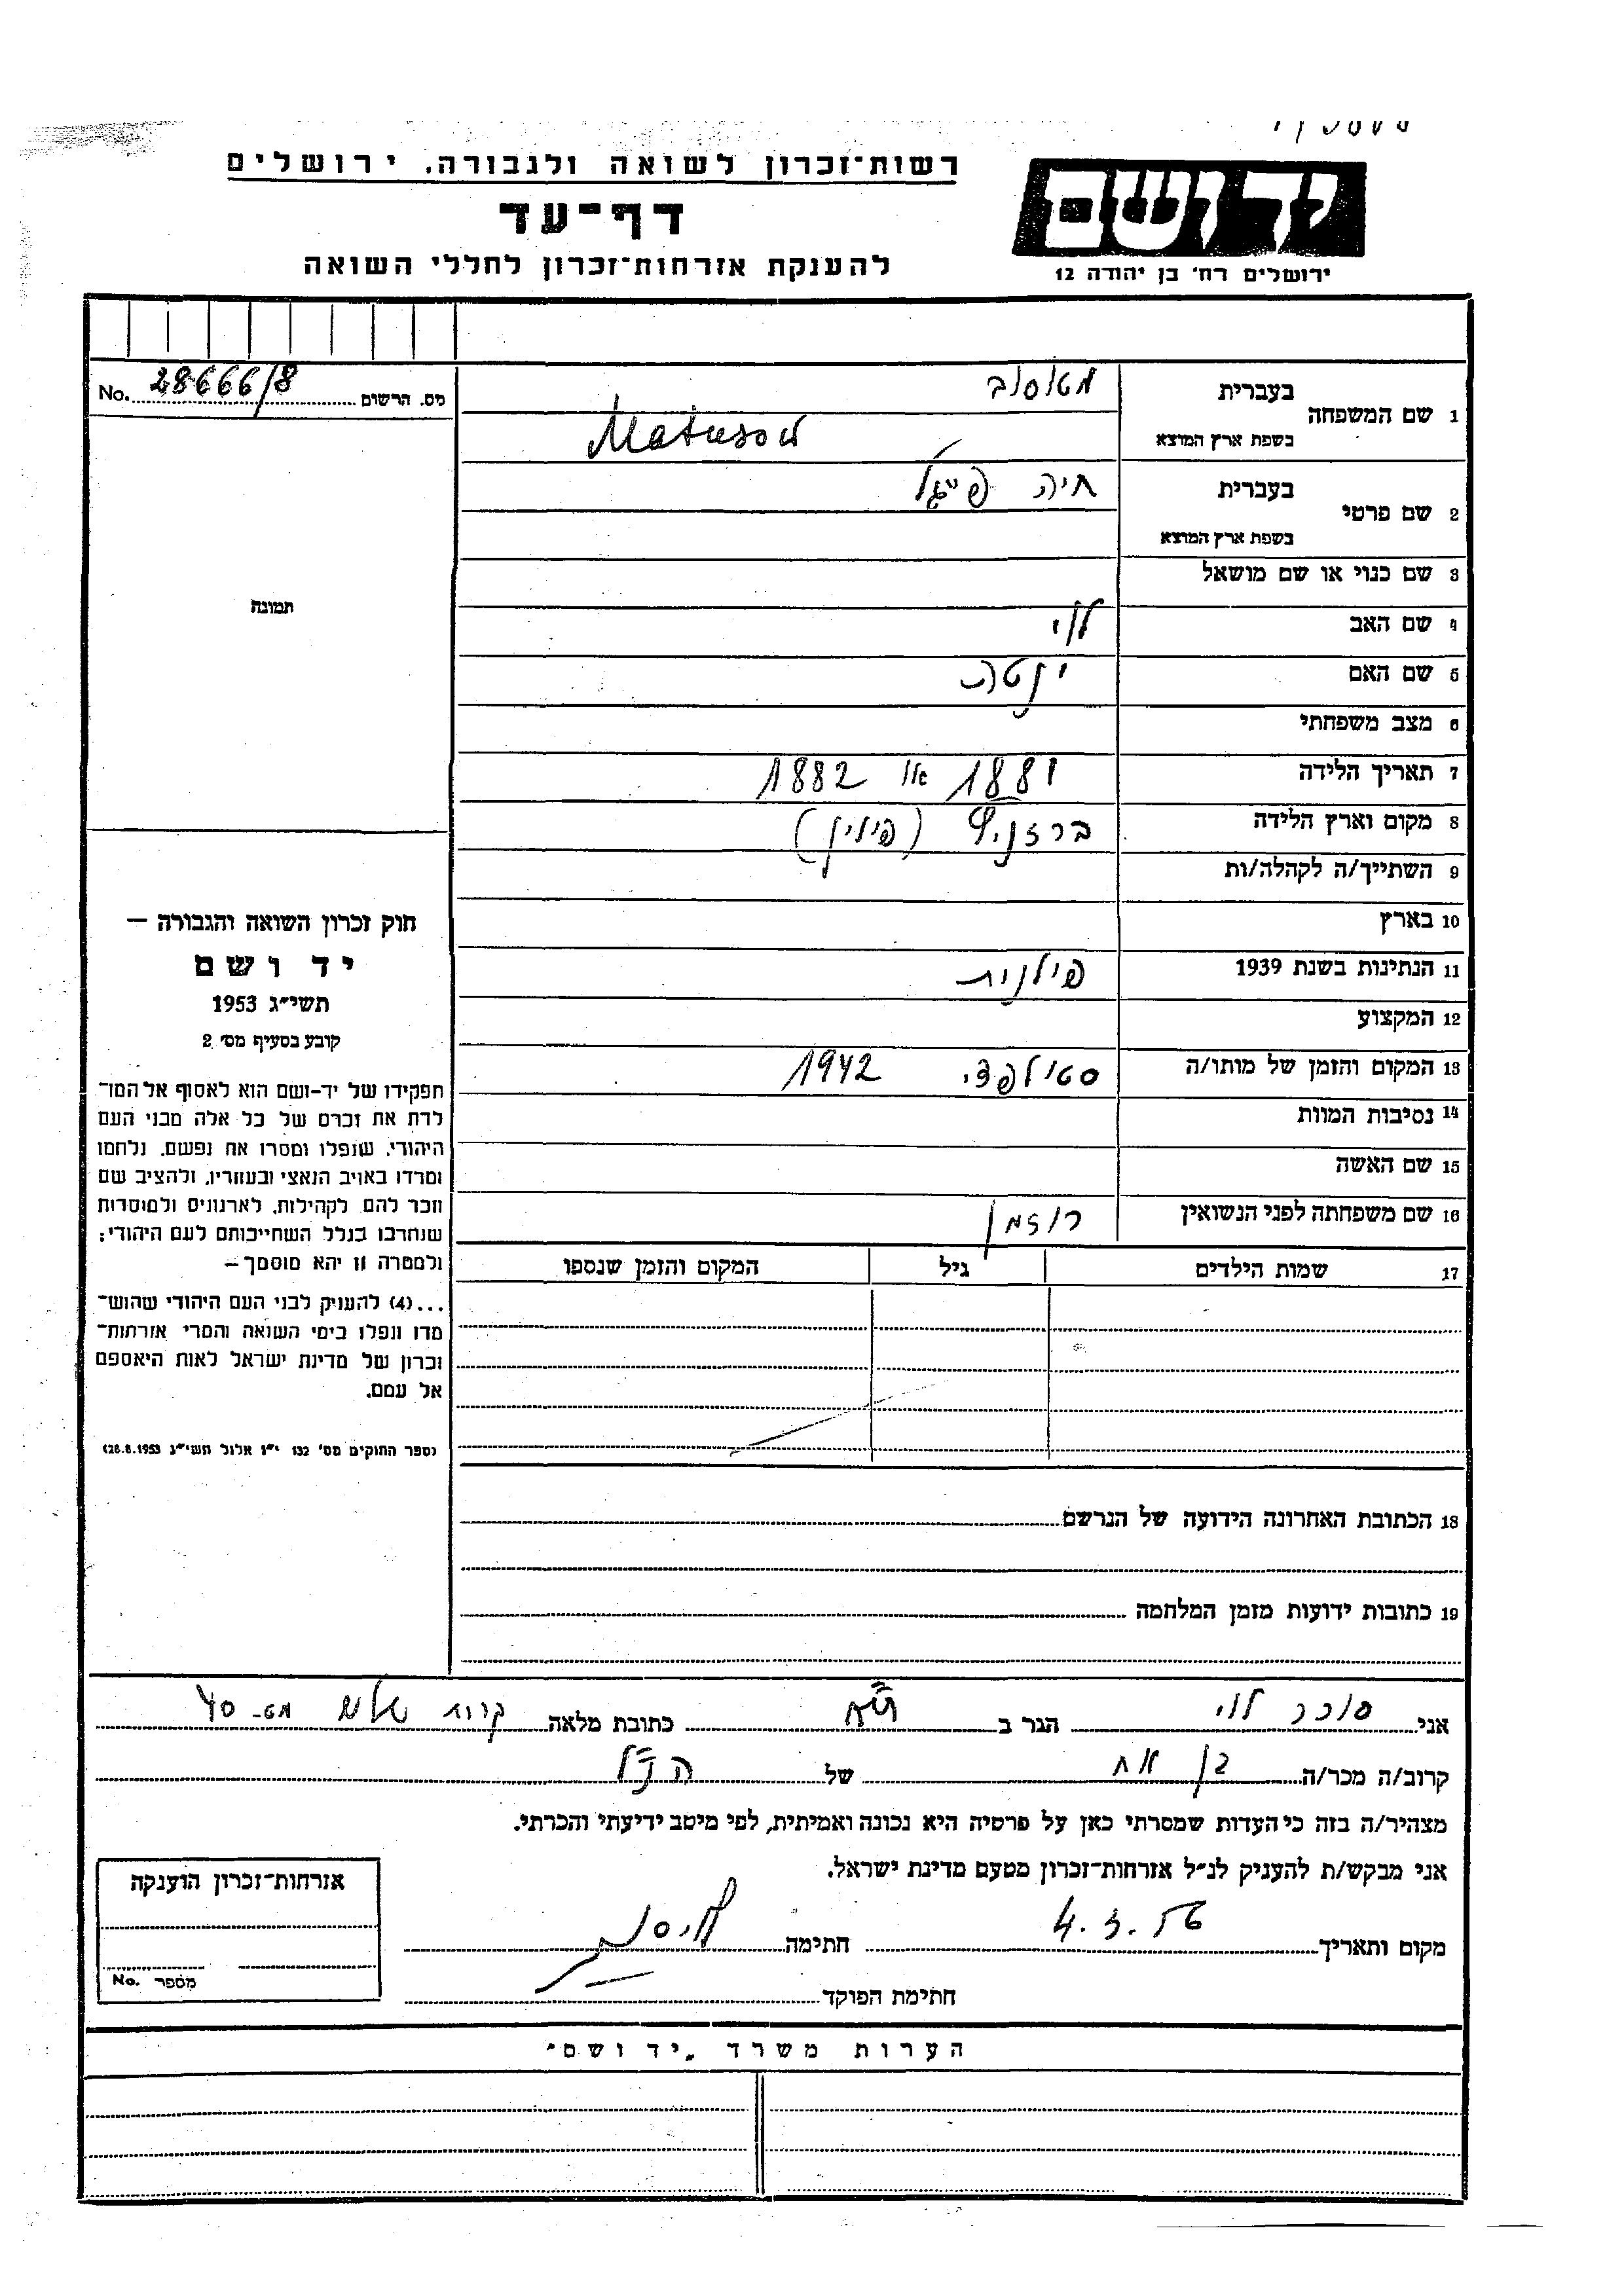 רשות־זכרון לשואה ולגבורה, ירושלים
דף־עד
להענקת אזרחות־זכרון לחללי השואה
יד ושם
ירושלים רח׳ בן יהודה 12
מס. הרשום 28666/8 No.
1 שם המשפחה
בעברית מטוסוב
בשפת ארץ המוצא Matusow
2 שם פרטי
בעברית חיה פייגל
בשפת ארץ המוצא
3 שם כנוי או שם מושאל
4 שם האב לוי
5 שם האם ינטה
6 מצב משפחתי
7 תאריך הלידה 1881 או 1882
8 מקום וארץ הלידה (פולין)
9 השתייך/ה לקהלה/ות
10 בארץ
11 הנתינות בשנת 1939 פולנית
12 המקצוע
13 המקום והזמן של מותו/ה סטולפצי 1942
14 נסיבות המוות
15 שם האשה
16 שם משפחתה לפני הנשואין רוזמן
17 שמות הילדים גיל המקום והזמן שנספו
18 הכתובת האחרונה הידועה של הנרשם
19 כתובות ידועות מזמן המלחמה
תמונה
חוק זכרון השואה והגבורה –
יד ושם
תשי״ג 1953
קובע בסעיף מס׳ 2
תפקידו של יד-ושם הוא לאסוף אל המו־
לדת את זכרם של כל אלה מבני העם
היהודי, שנפלו ומסרו את נפשם, נלחמו
ומרדו באויב הנאצי ובעוזריו, ולהציב שם
וזכר להם לקהילות, לארגונים ולמוסדות
שנחרבו בגלל השתייכותם לעם היהודי;
ולמטרה זו יהא מוסמך –
...(4) להעניק לבני העם היהודי שהוש־
מדו ונפלו בימי השואה והמרי אזרחות־
זכרון של מדינת ישראל לאות היאספם
אל עמם.
(ספר החוקים מס׳ 132 י״ז אלול תשי״ג 28.8.1953)
אני סוכר לוי הגר ב ת״א כתובת מלאה קרית שלום
קרוב/ה מכר/ה בן אח של הנ״ל
מצהיר/ה בזה כי העדות שמסרתי כאן על פרטיה היא נכונה ואמיתית, לפי מיטב ידיעתי והכרתי.
אני מבקש/ת להעניק לנ״ל אזרחות־זכרון מטעם מדינת ישראל.
מקום ותאריך 4.3.56 חתימה
חתימת הפוקד
אזרחות־זכרון הוענקה
מספר No.
הערות משרד „יד ושם״